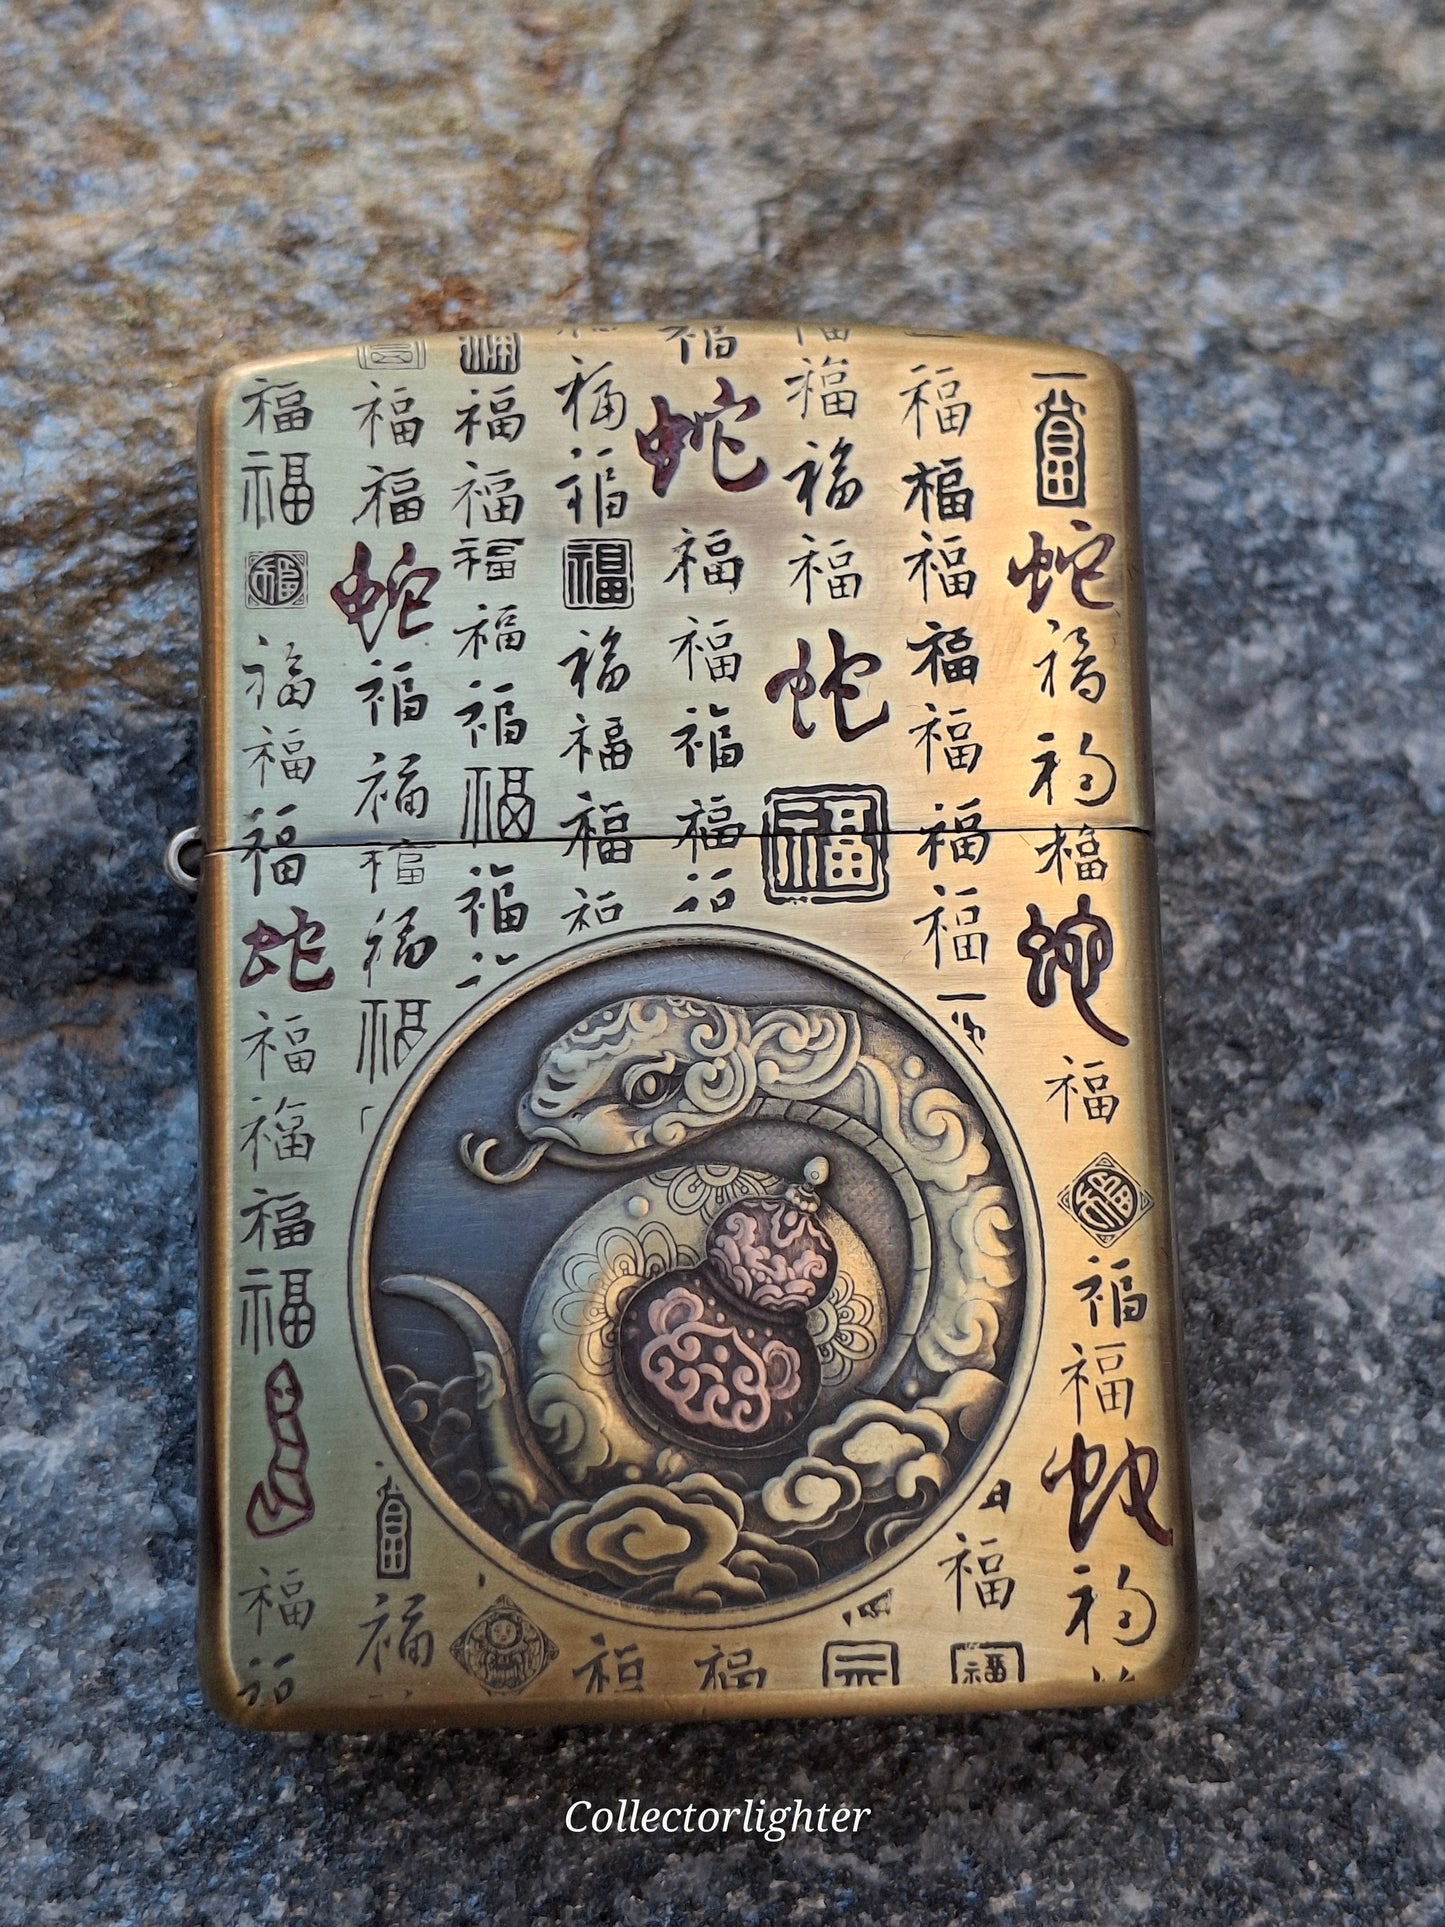 福蛇福福福蛇福福福福蛇福
福福福福福福福福福
福福福蛇福
福蛇福福福福福
福福福福福福
福福福福福福福
福福蛇福福福福福福福
福福福福福福蛇福福福福蛇福
Collectorlighter